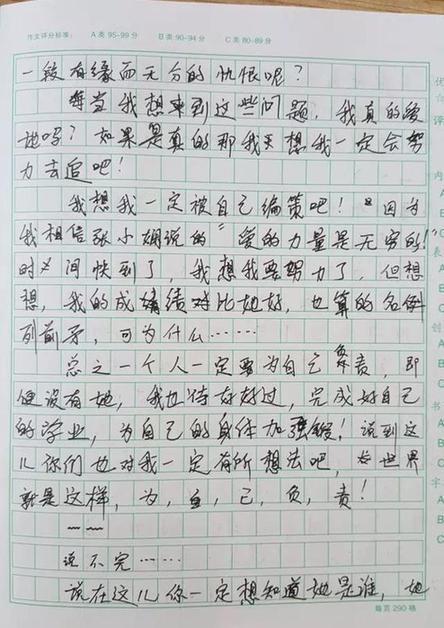 作文评分标准: A类95-99分 B类90-94分 C类80-89分
一段有缘而无分的忧恨呢?
每当我想来到这些问题,我真的爱
她吗?如果是真的那我天想我一定会努
力去追吧!
我想我一定被自己编策吧!因为
我相信张小娴说的“爱的力量是无穷的!
时间快到了,我想我要努力了,但想
想,我的成绩对比她好,也算的名例
列前矛,可为什么……
总之一个人一定要为自己负责,即
便没有她,我也待好好过,完成好自己
的学业,为自己的身体加强锻!说到这
儿你们也对我一定有所想法吧,世界
就是这样,为,自,己,负,责!
~~
说不完……
说在这儿你一定想知道她是谁,她
每页290格